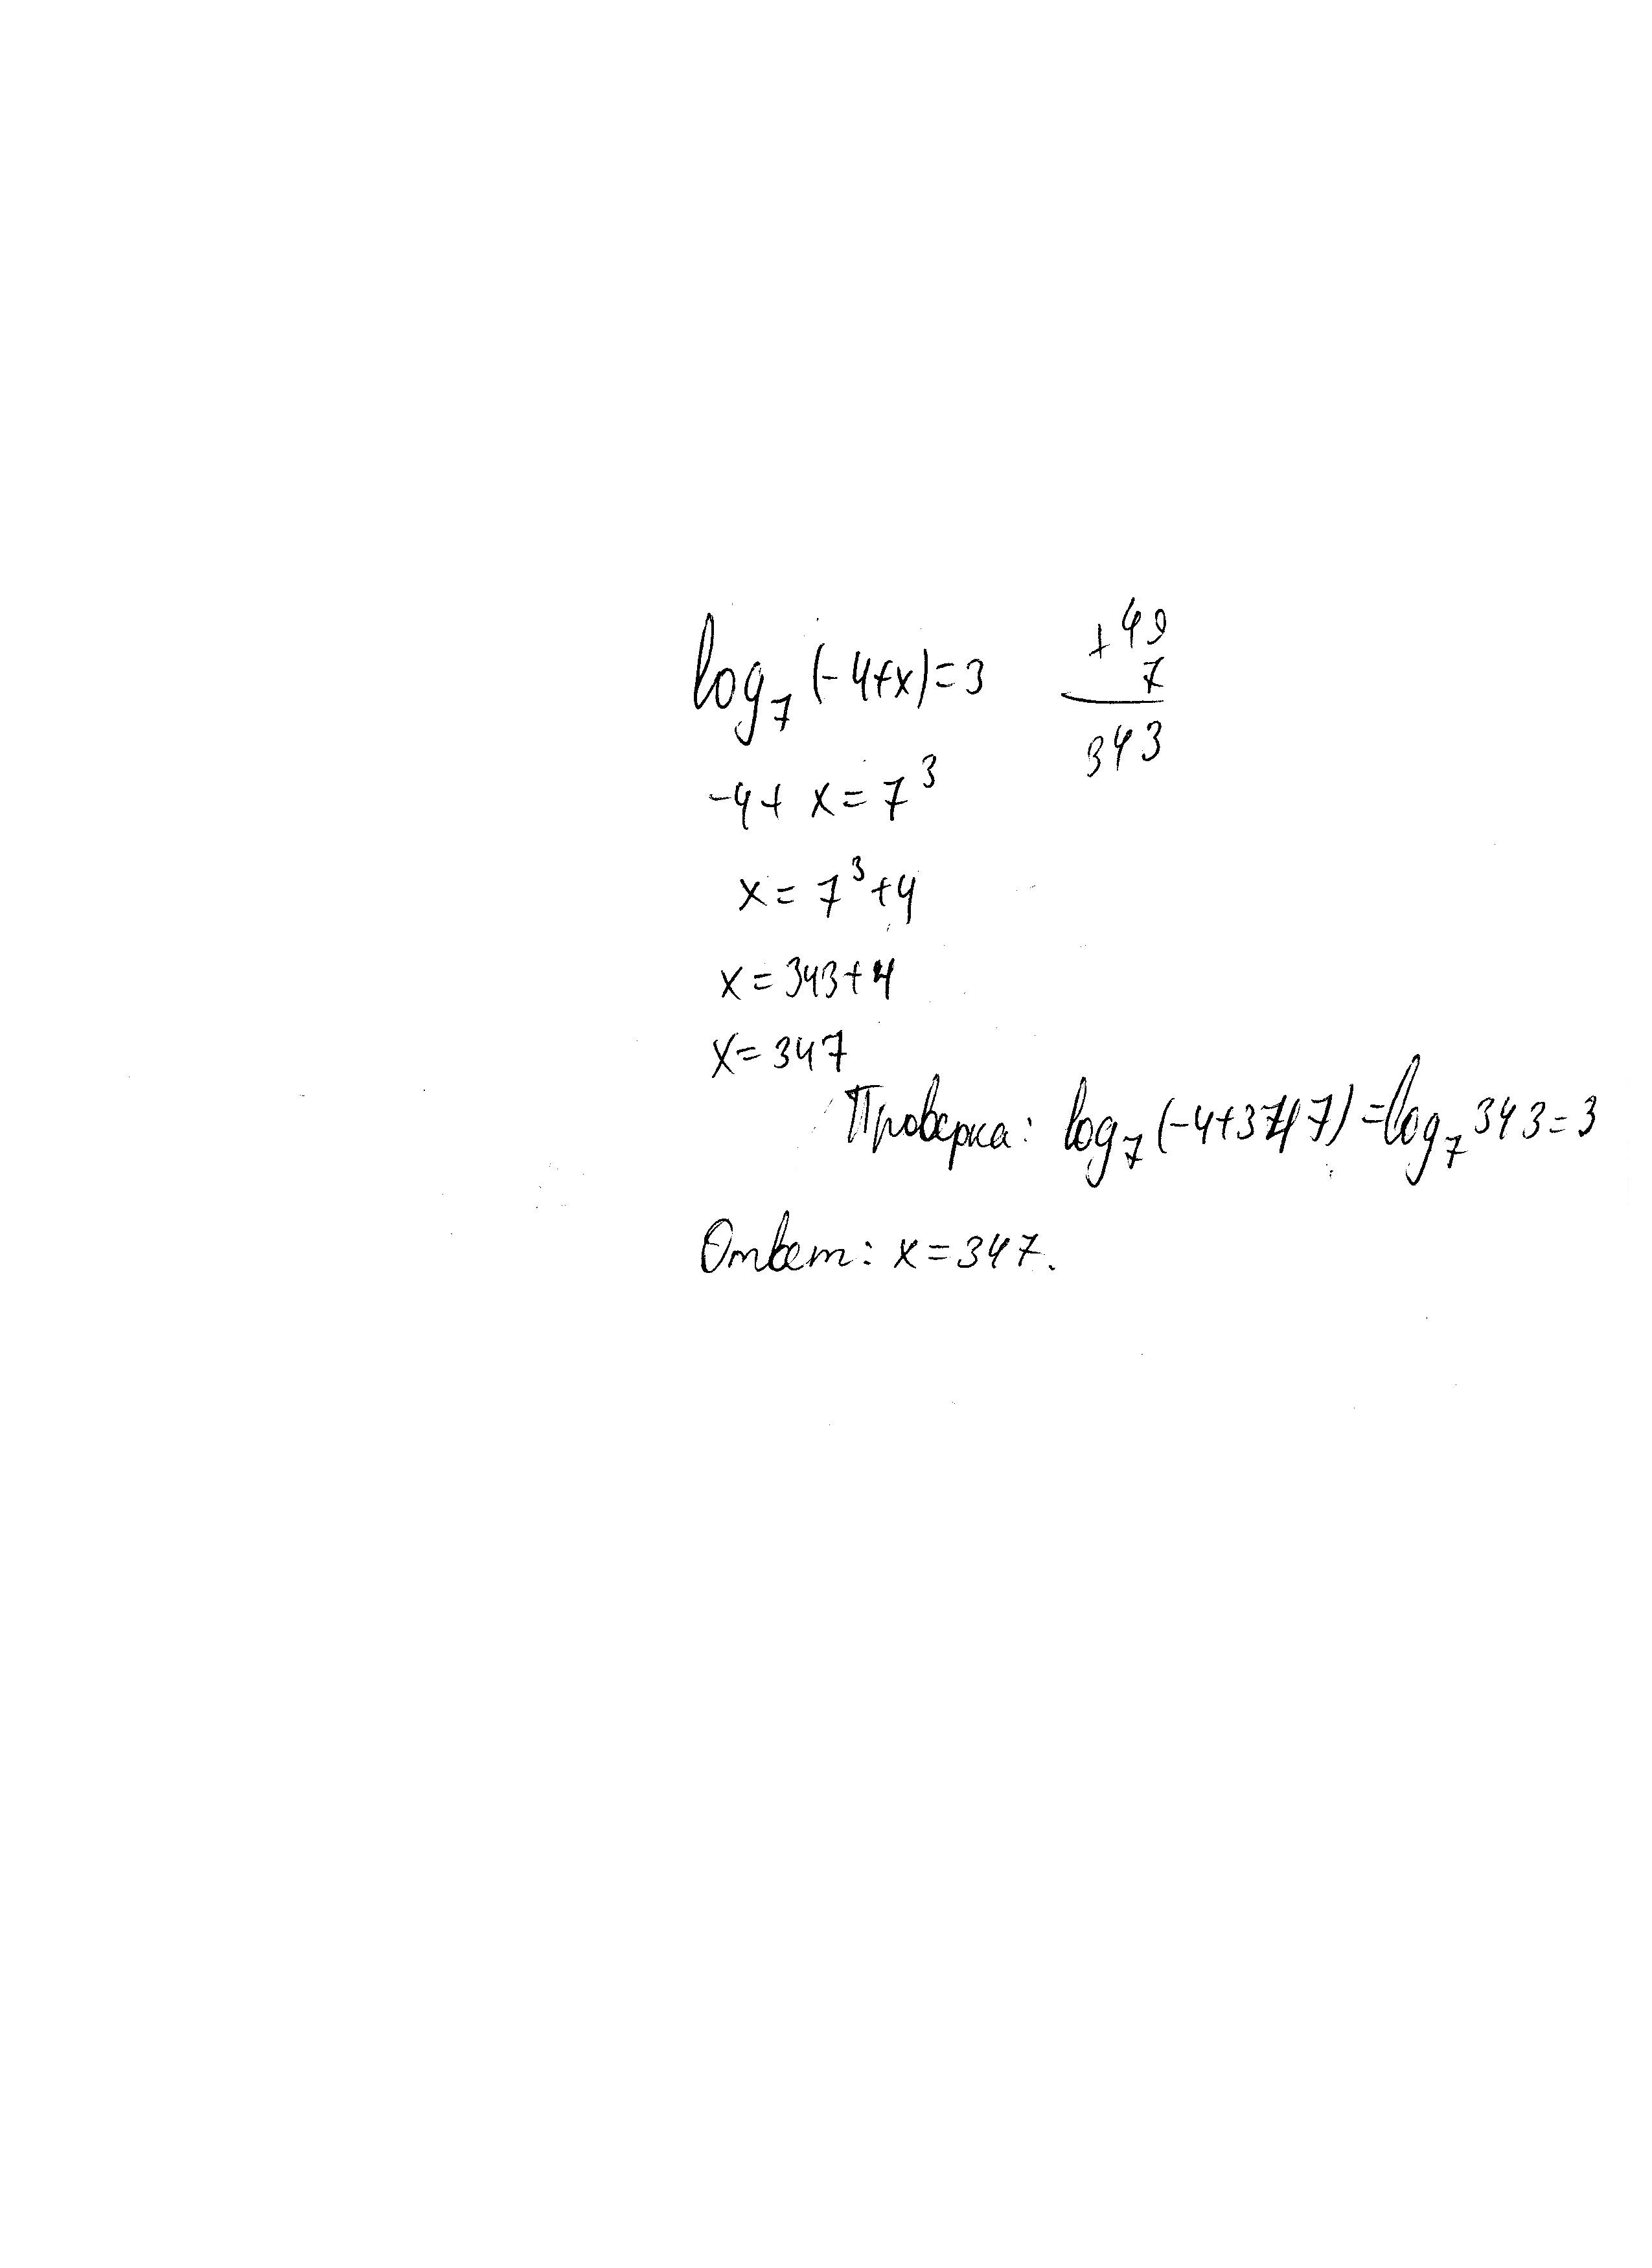 log₇(-4+x)=3
+49
7
343
-4+ x=7³
x=7³+4
x=343+4
x=347
Проверка: log₇(-4+347)=log₇343=3
Ответ: x=347.